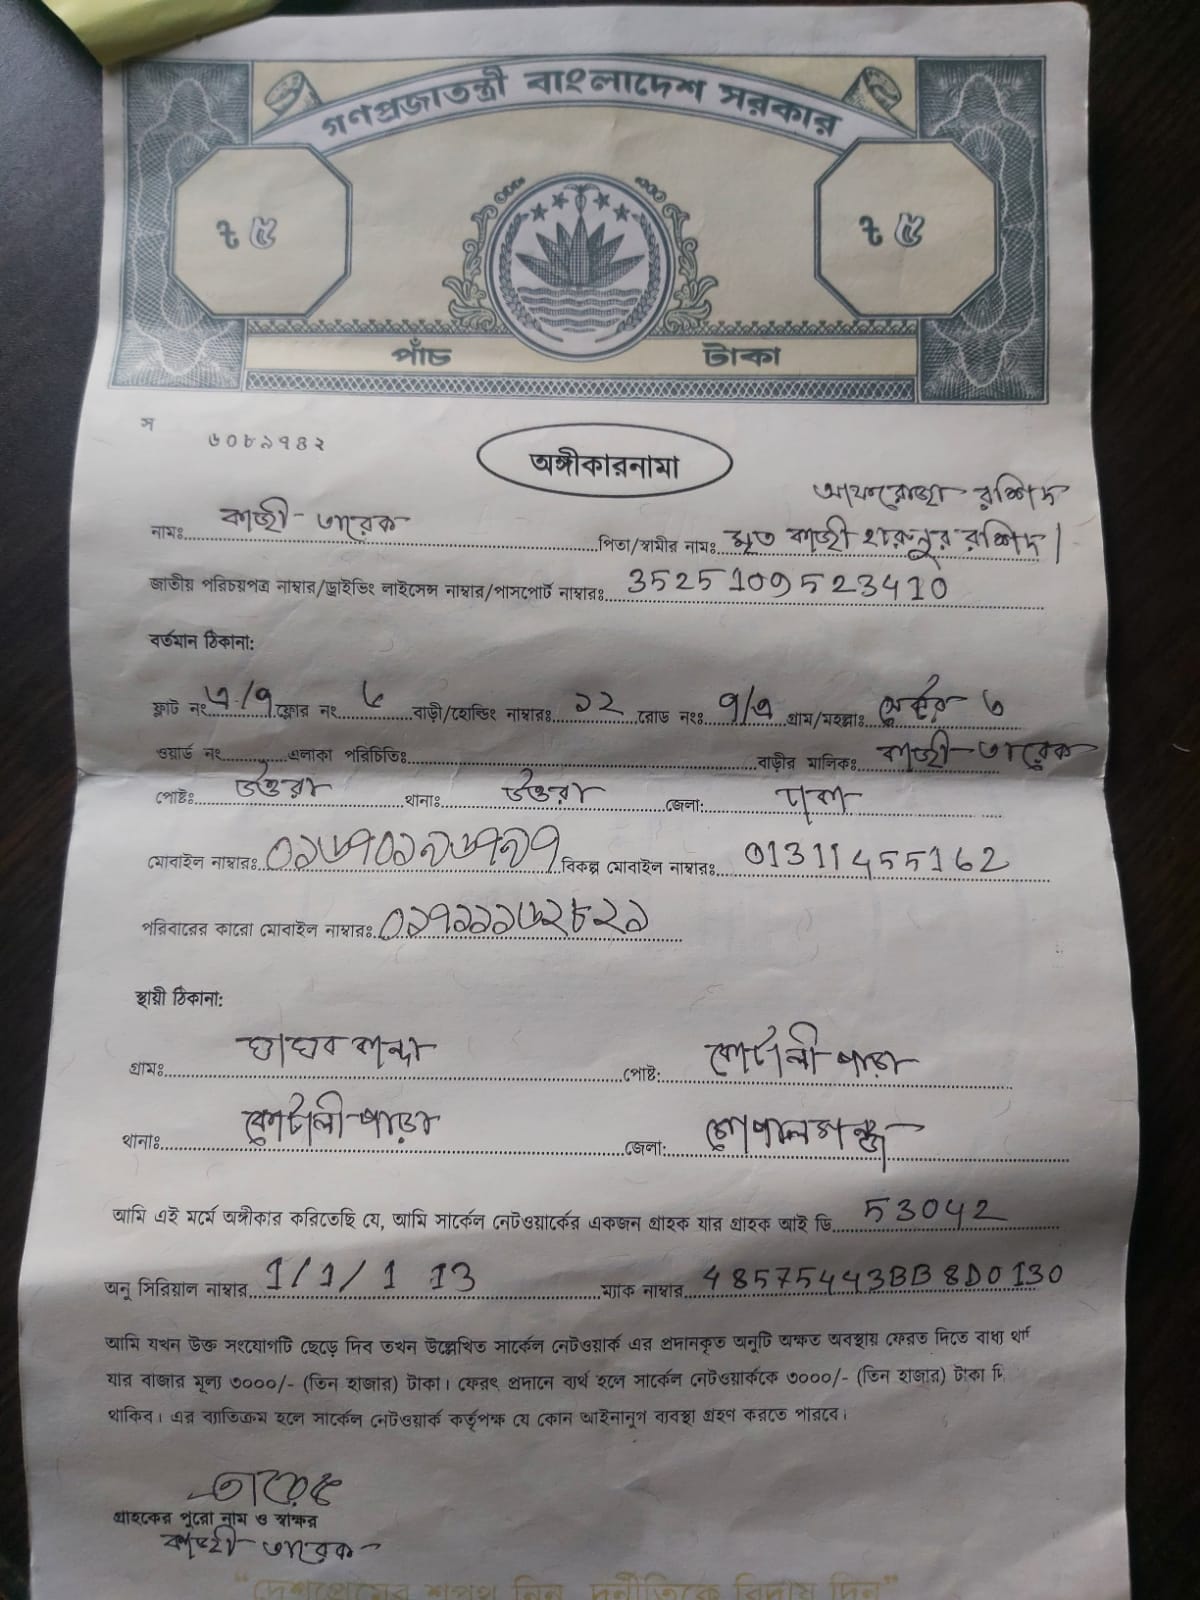 গণপ্রজাতন্ত্রী বাংলাদেশ সরকার
৳ ৫ ৳ ৫
পাঁচ টাকা
স ৬০৮৯৭৪২
অঙ্গীকারনামা
আফরোজা রশিদ
নামঃ কাজী তারেক পিতা/স্বামীর নামঃ মৃত কাজী হারুনুর রশিদ।
জাতীয় পরিচয়পত্র নাম্বার/ড্রাইভিং লাইসেন্স নাম্বার/পাসপোর্ট নাম্বারঃ 3525109523410
বর্তমান ঠিকানা:
ফ্লাট নং এ/৭ ফ্লোর নং ৬ বাড়ী/হোল্ডিং নাম্বারঃ ১২ রোড নংঃ ৭/এ গ্রাম/মহল্লাঃ সেক্টর ৩
ওয়ার্ড নং এলাকা পরিচিতিঃ বাড়ীর মালিকঃ কাজী তারেক
পোষ্টঃ উত্তরা থানাঃ উত্তরা জেলা: ঢাকা
মোবাইল নাম্বারঃ বিকল্প মোবাইল নাম্বারঃ 01311455162
পরিবারের কারো মোবাইল নাম্বারঃ ০১৭১১১৬২৮২১
স্থায়ী ঠিকানা:
গ্রামঃ ঘাঘর কান্দা পোষ্ট: কোটালী পাড়া
থানাঃ কোটালী পাড়া জেলা: গোপালগঞ্জ
আমি এই মর্মে অঙ্গীকার করিতেছি যে, আমি সার্কেল নেটওয়ার্কের একজন গ্রাহক যার গ্রাহক আই ডি 53042
অনু সিরিয়াল নাম্বার 1/1/1 13 ম্যাক নাম্বার 48575443BB8D0130
আমি যখন উক্ত সংযোগটি ছেড়ে দিব তখন উল্লেখিত সার্কেল নেটওয়ার্ক এর প্রদানকৃত অনুটি অক্ষত অবস্থায় ফেরত দিতে বাধ্য
যার বাজার মূল্য ৩০০০/- (তিন হাজার) টাকা। ফেরৎ প্রদানে ব্যর্থ হলে সার্কেল নেটওয়ার্ককে ৩০০০/- (তিন হাজার) টাকা
থাকিব। এর ব্যাতিক্রম হলে সার্কেল নেটওয়ার্ক কর্তৃপক্ষ যে কোন আইনানুগ ব্যবস্থা গ্রহণ করতে পারবে।
তারেক
গ্রাহকের পুরো নাম ও স্বাক্ষর
কাজী তারেক
“দেশপ্রেমের শপথ নিন, দুর্নীতিকে বিদায় দিন”